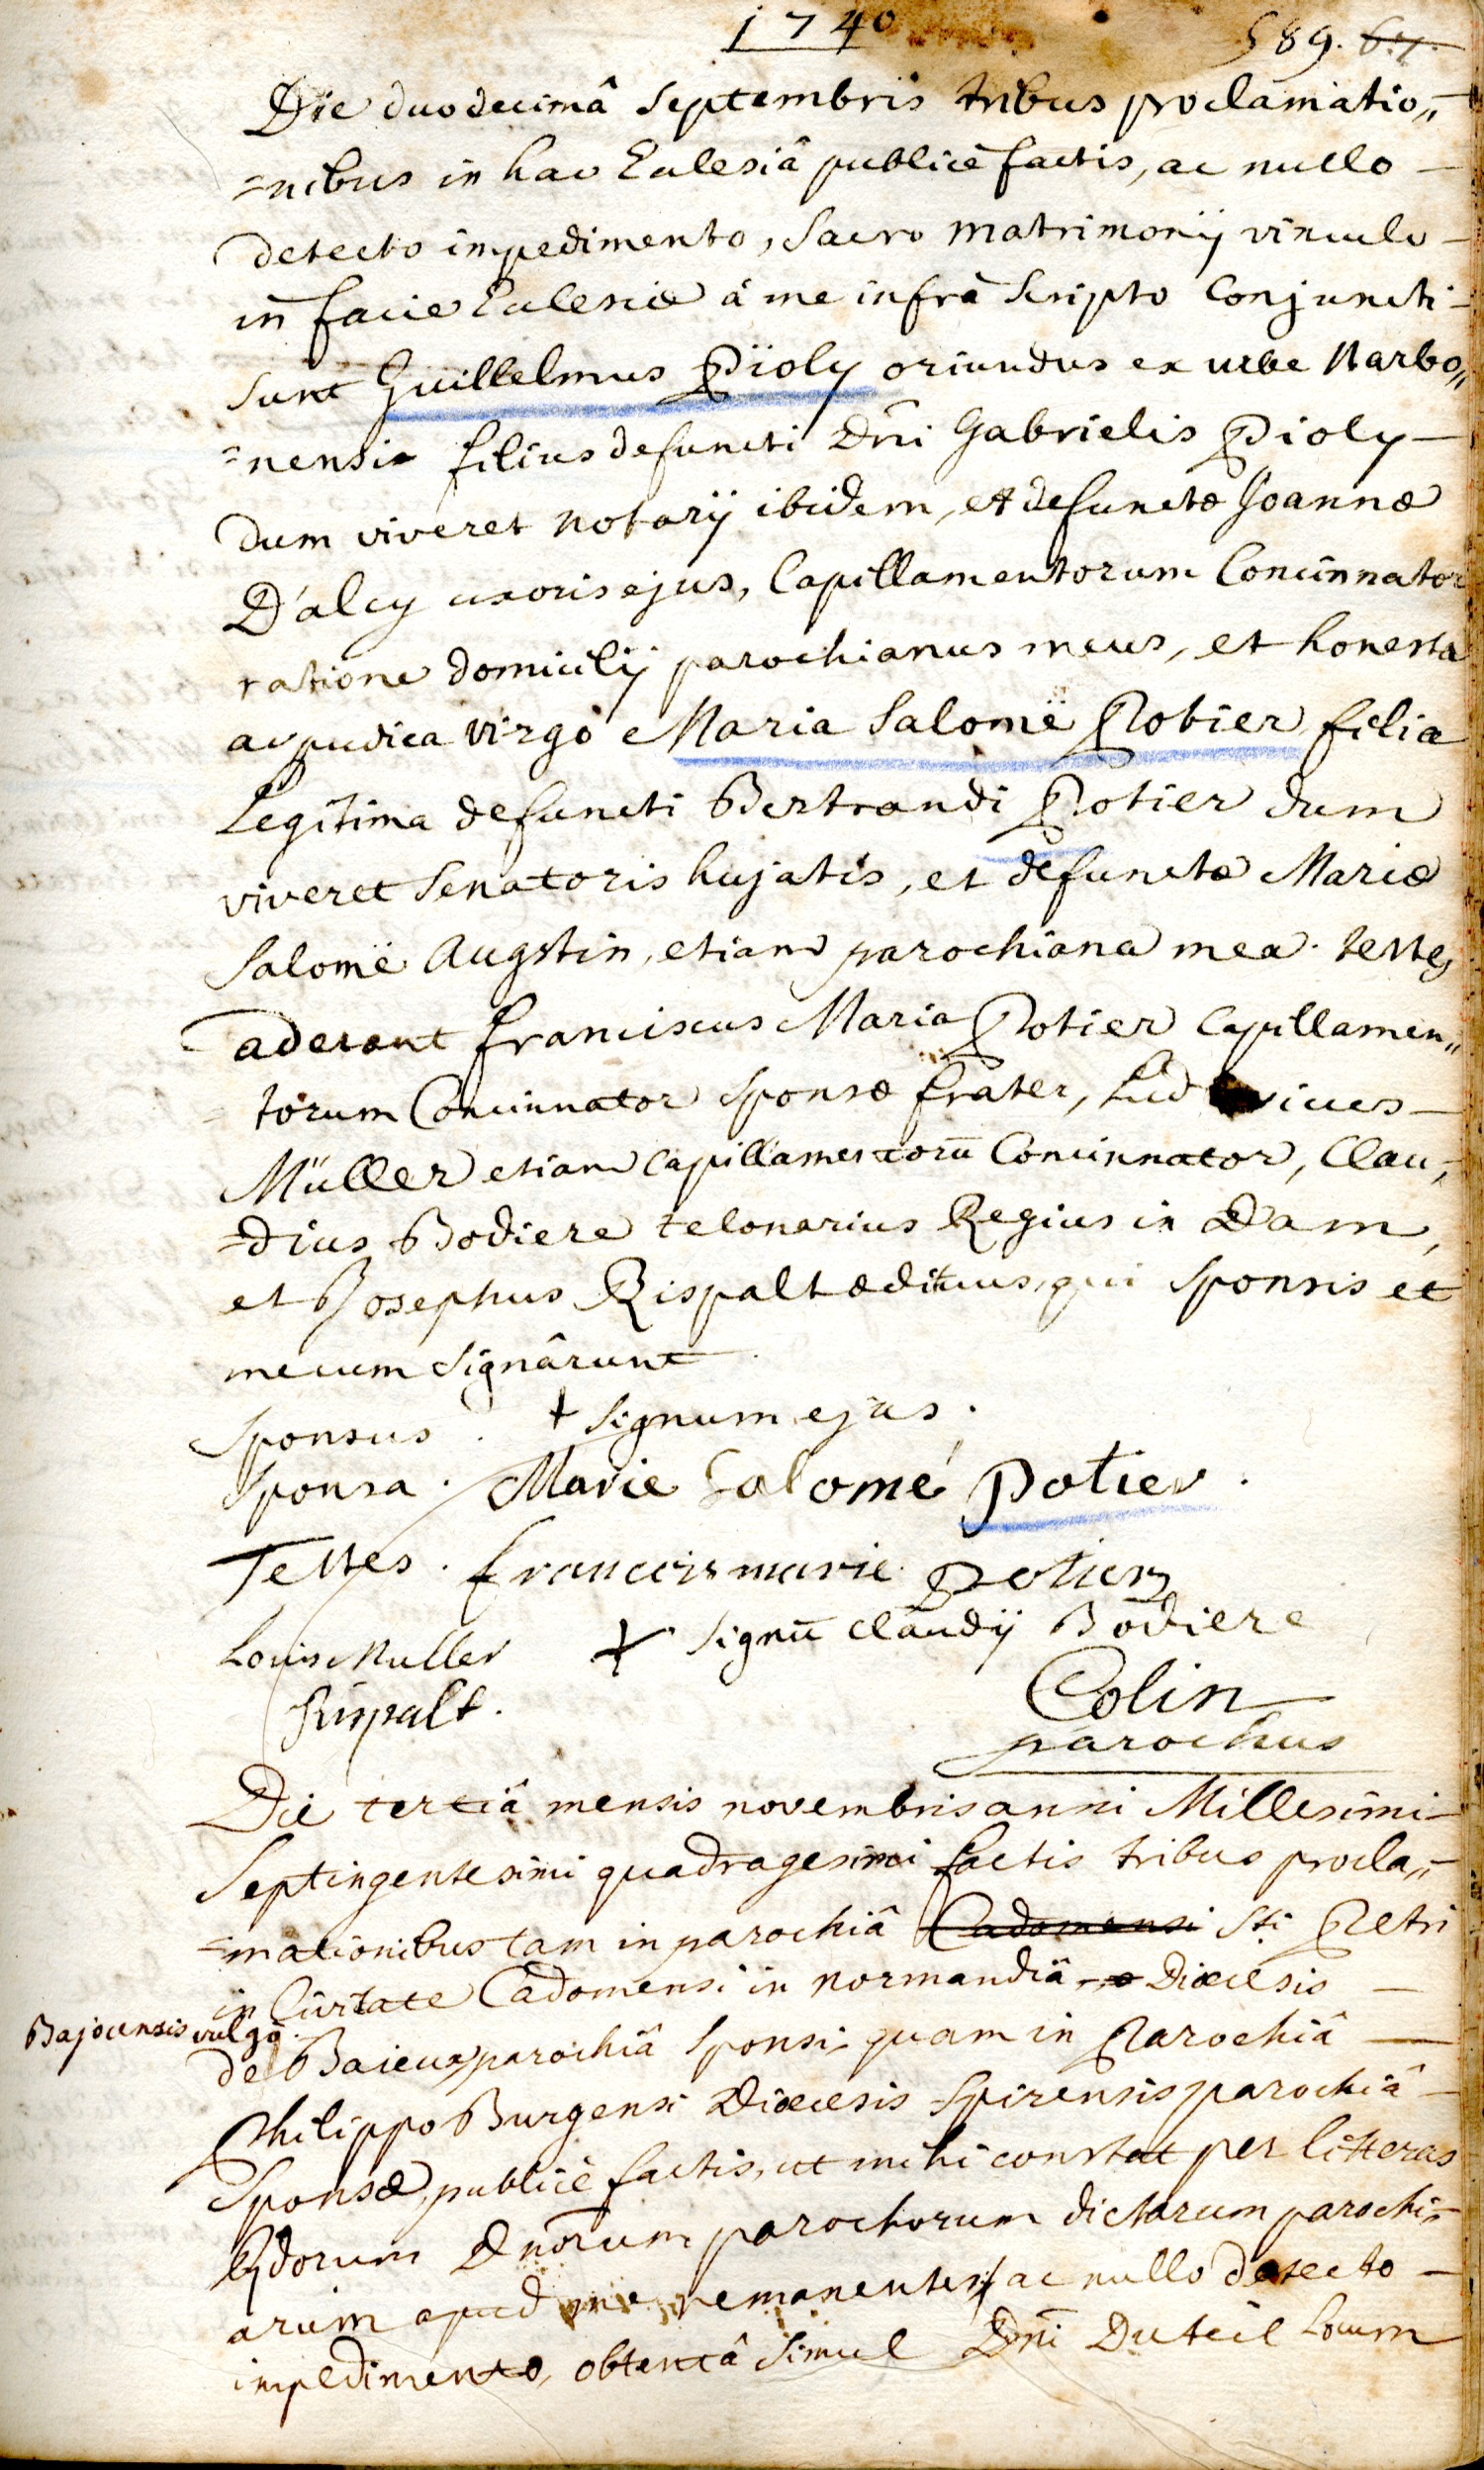 1740
589. 67.
Die duodecimâ Septembris tribus proclamatio„
=nibus in hac Eclesiâ publicè factis, ac nullo —
detecto impedimento, Sacro Matrimonÿ vinculo —
in facie Eclesiæ à me infrà Scripto Conjuncti —
Sunt Guillelmus Pïoly oriundus ex urbe Narbo„
=nensi filius defuncti Dñi Gabrielis Pioly —
dum viveret Notarÿ ibidem, et defunctæ Joannæ
D'alcy uxoris ejus, Capillamentorum Concinnator
ratione domicilÿ parochianus meus, et honesta
ac pudica virgo Maria Salomë Potier filia
Legitima defuncti Bertrandi Potier dum
viveret Senatoris hujatis, et defunctæ Mariæ
Salomë Augstin, etiam parochiana mea. testes
aderant franciscus Maria Potier Capillamen„
=torum Concinnator Sponsæ frater, Ludovicus —
Müller etiam Capillamentorū Concinnator, Clau„
=dius Bodiere telonarius Regius in Dam,
et Josephus Rispalt ædituus, qui Sponsis et
mecum Signârunt.
Sponsus . + Signum ejus.
Sponsa . Marie Salomé Potier.
Testes . francois marie Potier
Louis Muller + Signū Claudÿ Bodiere
Rispalt.
Colin
parochus
Die tertiâ mensis novembris anni Millesimi —
Septingentesimi quadragesimi factis tribus procla„
=mationibus tam in parochiâ Cadomensi Sti Petri
in Civitate Cadomensi in Normandiâ Diœcesis —
Bajocensis vulgò
de Baieux parochiâ Sponsi quam in Parochiâ —
Philippo Burgensi Diœcesis Spirensis parochiâ —
Sponsæ, publicè factis, ut mihi constat per litteras
Dnorum parochorum dictarum parochi„
arum apud me remanentes ac nullo detecto —
impedimento, obtentâ Simul Dñi Duteil Locum